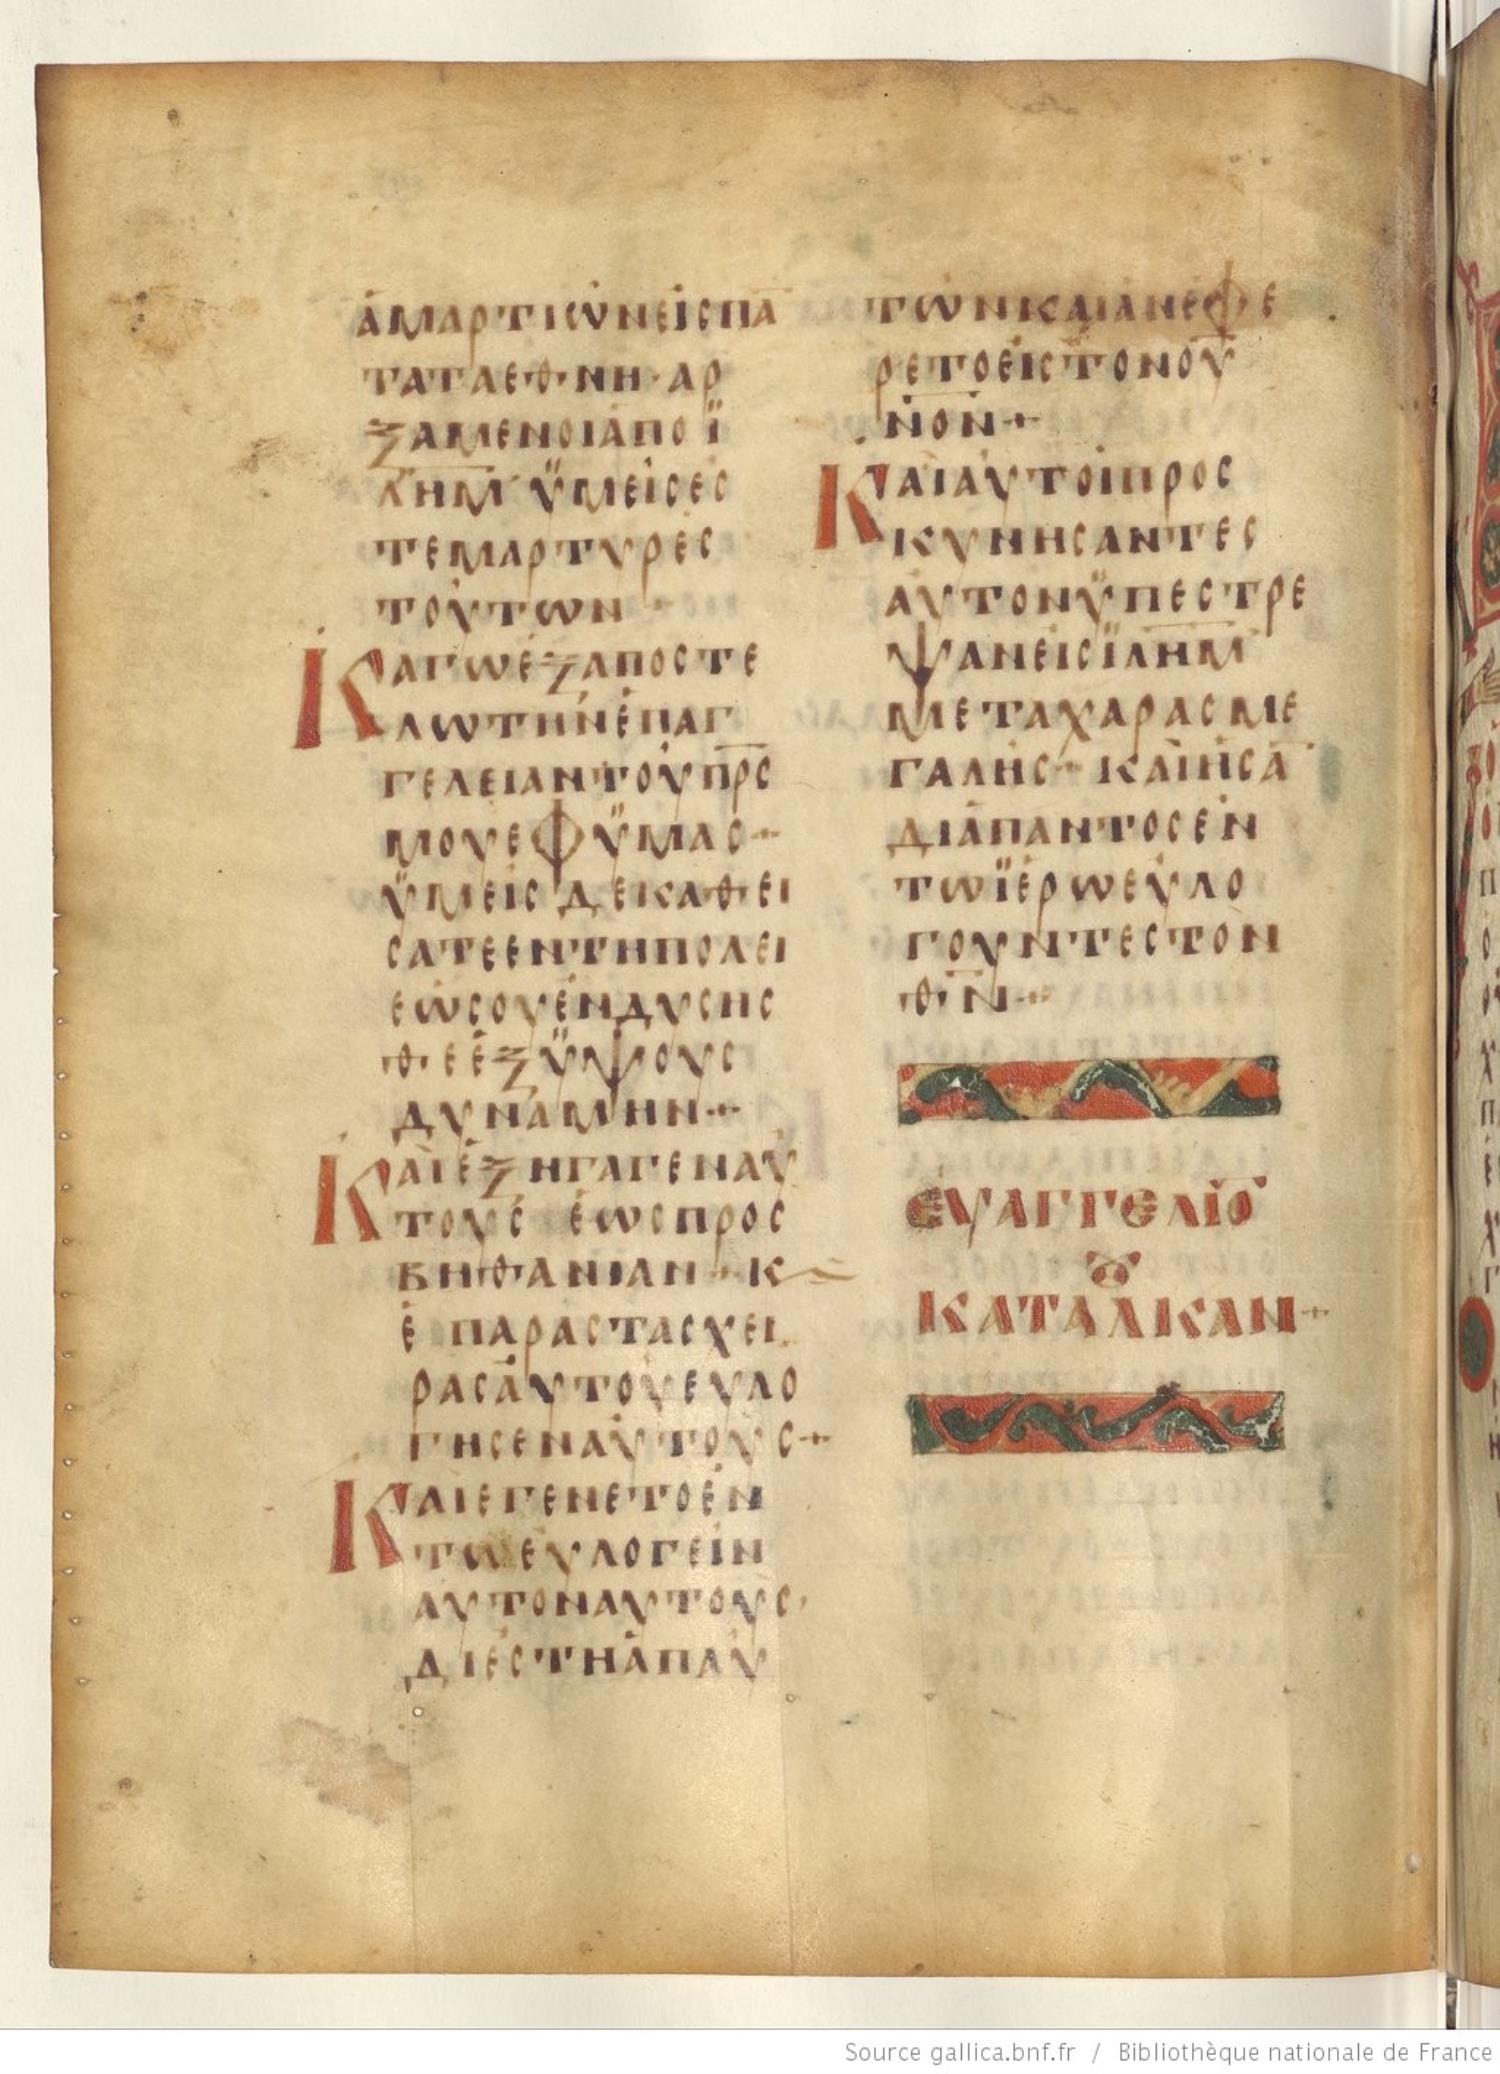 ἁμαρτιῶνεἰςπᾱ
ταταεθνη·αρ
ξαμενοιἀποϊ
λημ̅·ϋμεἰςες
τεμαρτυρὲς
τοὐτων·
Κἀγωἐξαποστε
λωτὴνἐπαγ
γελειαντοὐπρ̅ς
μουεφϋμας·+
ϋμεἰςδεκαθει
σατεεντηπολει
εὡςοὐἐνδυσης
θεἐξϋψους
δυνἀμην·+
Καὶἐξηγαγεναὐ
τοὐς ἑωςπρος
βηθανιαν·κ
ἐπαραςταςχει
ραςἀυτοὐευλο
γησεναὐτοὐς·+
Καὶεγενετοἐν
τωευλογεἰν
αυτοναυτοὺς,
διἐςτηἀπαὐ
τωνκαιανεφε
ρετοεἰςτονου̅
νὸν·+
Καἰαυτοἰπρος
κυνησαντες
αυτονϋπεστρε
ψανεἰςϊλημ̅
μεταχαραςμε
γαλης·καὶἠσᾱ
διἀπαντοςἐν
τωϊἐρωευλο
γουντεςτὸν
θ̅ν̅·+
ευαγγελιο̅
κατα λȣκαν·+
Source gallica.bnf.fr / Bibliothèque nationale de France